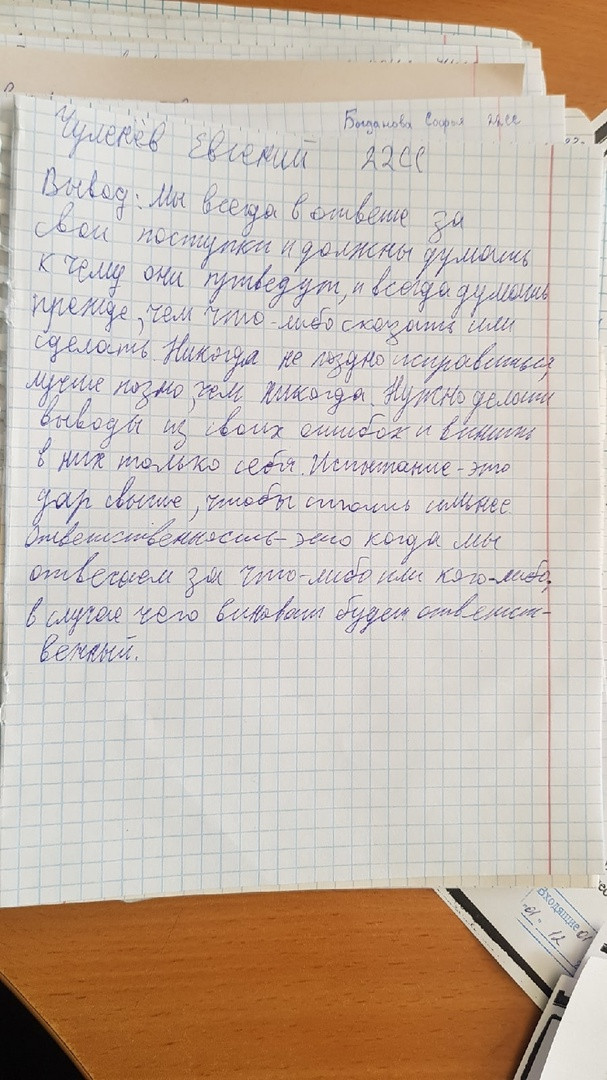 Богданова Софья 22СС
Чуленёв Евгений 22СС
Вывод: Мы всегда в ответе за
свои поступки и должны думать
к чему они приведут, и всегда думать
прежде, чем что-либо сказать или
сделать. Никогда не поздно исправиться,
лучше позно, чем никогда. Нужно делать
выводы из своих ошибок и винить
в них только себя. Испытание - это
дар свыше, чтобы стать сильнее.
Ответственность - это когда мы
отвечаем за что-либо или кого-либо,
в случае чего виноват будет ответст-
венный.
Входящие